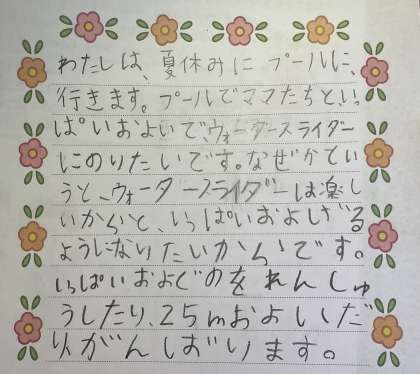 わたしは、夏休みにプールに、
行きます。プールでママたちといっ
ぱいおよいで、ウォータースライダー
にのりたいです。なぜかてい
うと、ウォータースライダーは楽し
いからと、いっぱいおよげる
ようになりたいからです。
いっぱいおよぐのをれんしゅ
うしたり、25mおよいだ
りがんばります。